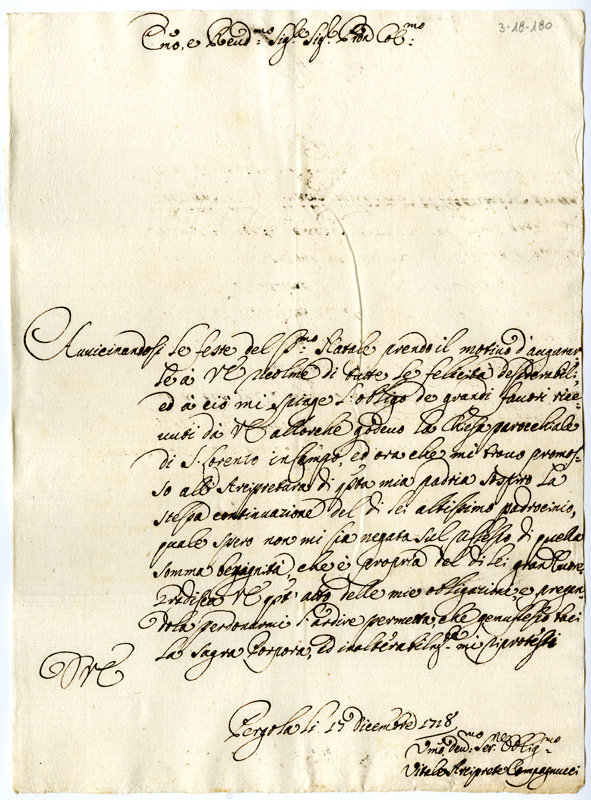 3-18-180
Em̃o, e Reud:mo Sig:re Sig:re Pron Col:mo
Auuicinandosi le feste del SS:mo Natale prendo il motiuo d'augurar
le à VE ricolme di tutte le felicità desiderabili,
ed à ciò mi spinge l'obligo de grandi fauori rice-
uuti dà VE allorche godeuo la Chiesa parocchiale
di S. Lorenzo in Campo, ed ora che mi trouo promos-
so all'Arcipretura di q̃sta mia padria sospiro la
stessa continuazione del di lei altissimo padrocinio,
quale spero non mi sia negata sul riflesso di quella
somma benignità, che è propria del di lei gran Cuore.
Gradisca VE q̃st'atto delle mie obligazioni, e pregan-
dola perdonarmi l'ardire permetta, che genuflesso baci
la Sagra Porpora, ed inalterabilm:te mi protesti
D VE
Pergola li 17 Dicembre 1718
Vmõ deu:mo Ser:re Oblig:mo
Vitale Arciprete Compagnucci